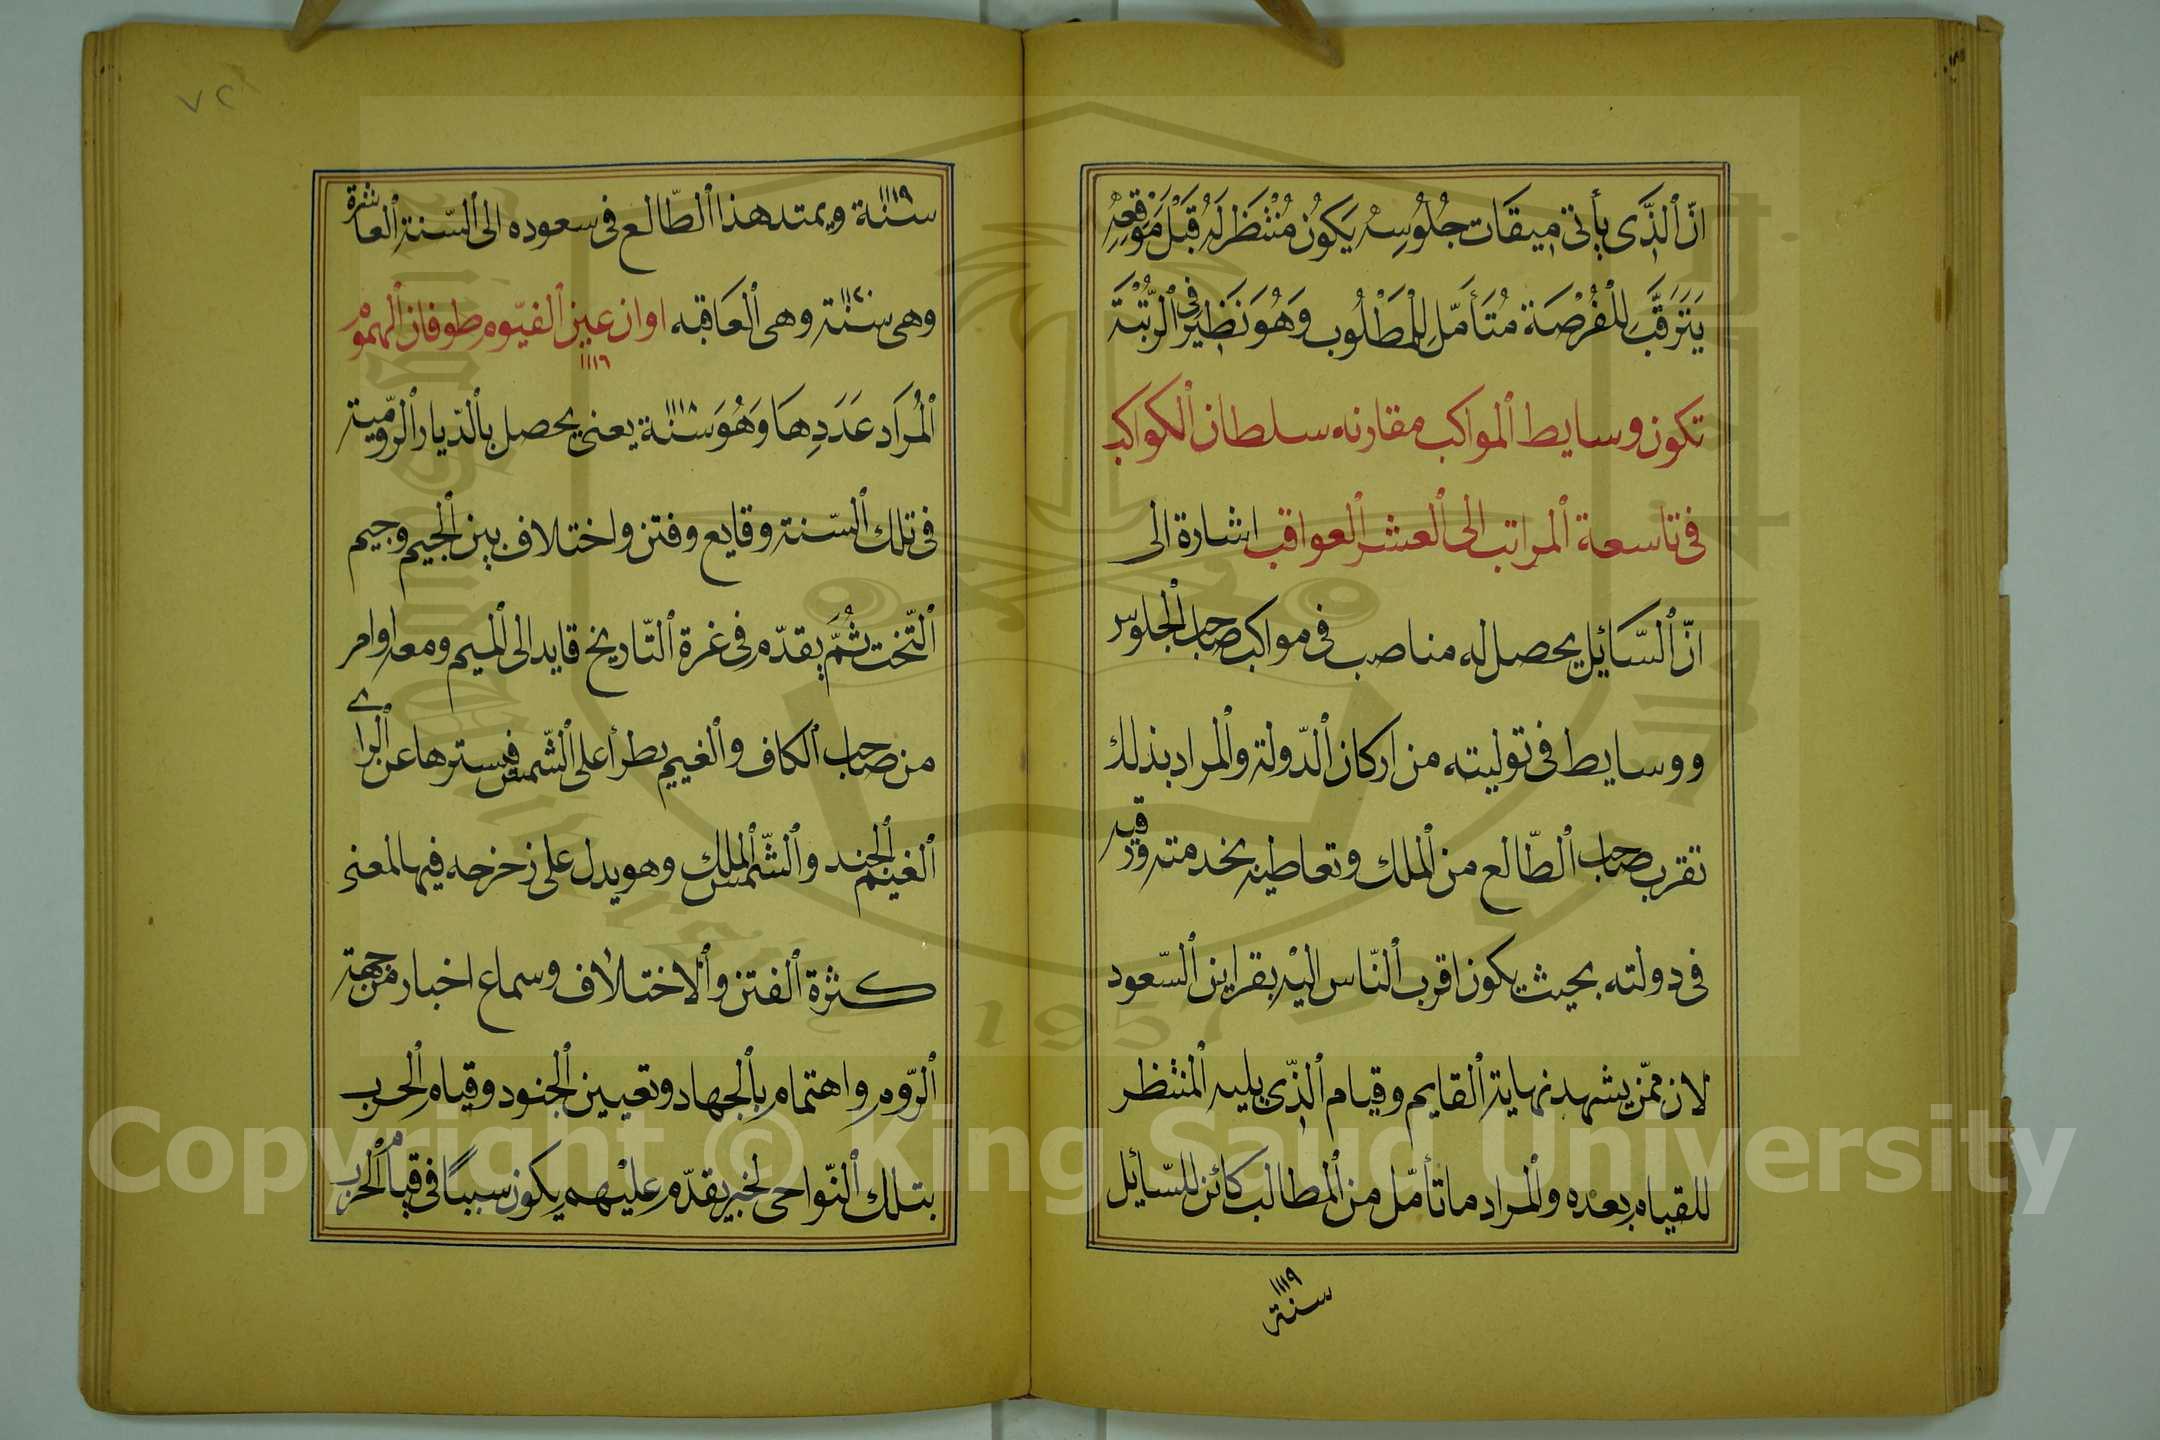 انّ الذّى يأتى ميقات جُلُوسِهْ يَكُونُ مُنْتَظَرْ لَهُ قَبْلَ مَوْقِعِهْ
يَتَرَقَّبِ لِلْفُرْصَة مُتَأَمّلِ لِلْمَطْلُوب وَهُوَ نَظِيرْ فى الرُّتْبَة
تكون وسايط المواكب مقارنه سلطان الكواكب
فى تاسعة المراتب الى العشر العواقب اشارة الى
انّ السّائيل يحصل له مناصب فى مواكب صاحب الجلوس
ووسايط فى توليته من اركان الدّولة والمراد بذلك
تقرب صاحب الطّالع من الملك وتعاطيه بخدمته ورقيه
فى دولته بحيث يكون اقرب النّاس اليْه بقراين السّعود
لان ممّن يشهد نهاية القايم وقيام الذّى يليه المنتظر
للقيام بعده والمراد ما تأمّل من المطالب كائن للسّائيل
سنة ١١١٩
٧٢
سنة ١١١٩ ويمتد هذا الطّالع فى سعوده الى السّنة العاشرة
وهى سنة ١١٢٠ وهى العَاقبه اوان عين الفيّوم طوفان الهموم
١١١٦
المُرَاد عَدَدِهَا وَهُوَ سنة ١١١٨ يعنى يحصل بالدّيار الرّوميّة
فى تلك السّنة وقايع وفتن واختلاف بين الجيم وجيم
التّخت ثُمَّ يقدّم فى غرة التّاريخ قايد الى الميم ومعه اوامر
من صاحب الكاف والغيم يطرأ على الشّمس فيسترها عن الراى
الغيم الجند والشّمس الملك وهو يدل على زحزحه فيها لمعنى
كثرة الفتن والاختلاف وسماع اخبار من جهة
الرّوم واهتمام بالجهاد وتعيين الجنود وقيام الحرب
بتلك النّواحى لخبر يقدّم عليْهم يكون سببًا فى قيام الحرب
King Saud University
1957
Copyright © King Saud University